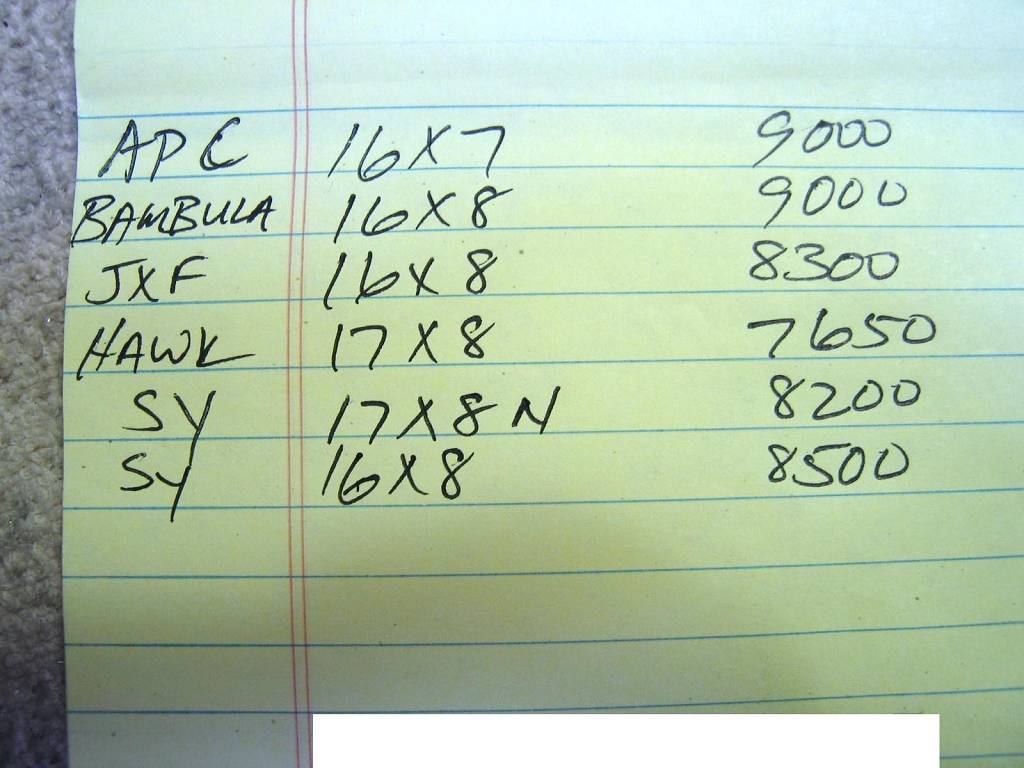 APC 16X7 9000
BAMBULA 16X8 9000
JXF 16X8 8300
HAWK 17X8 7650
SY 17X8 N 8200
Sy 16X8 8500